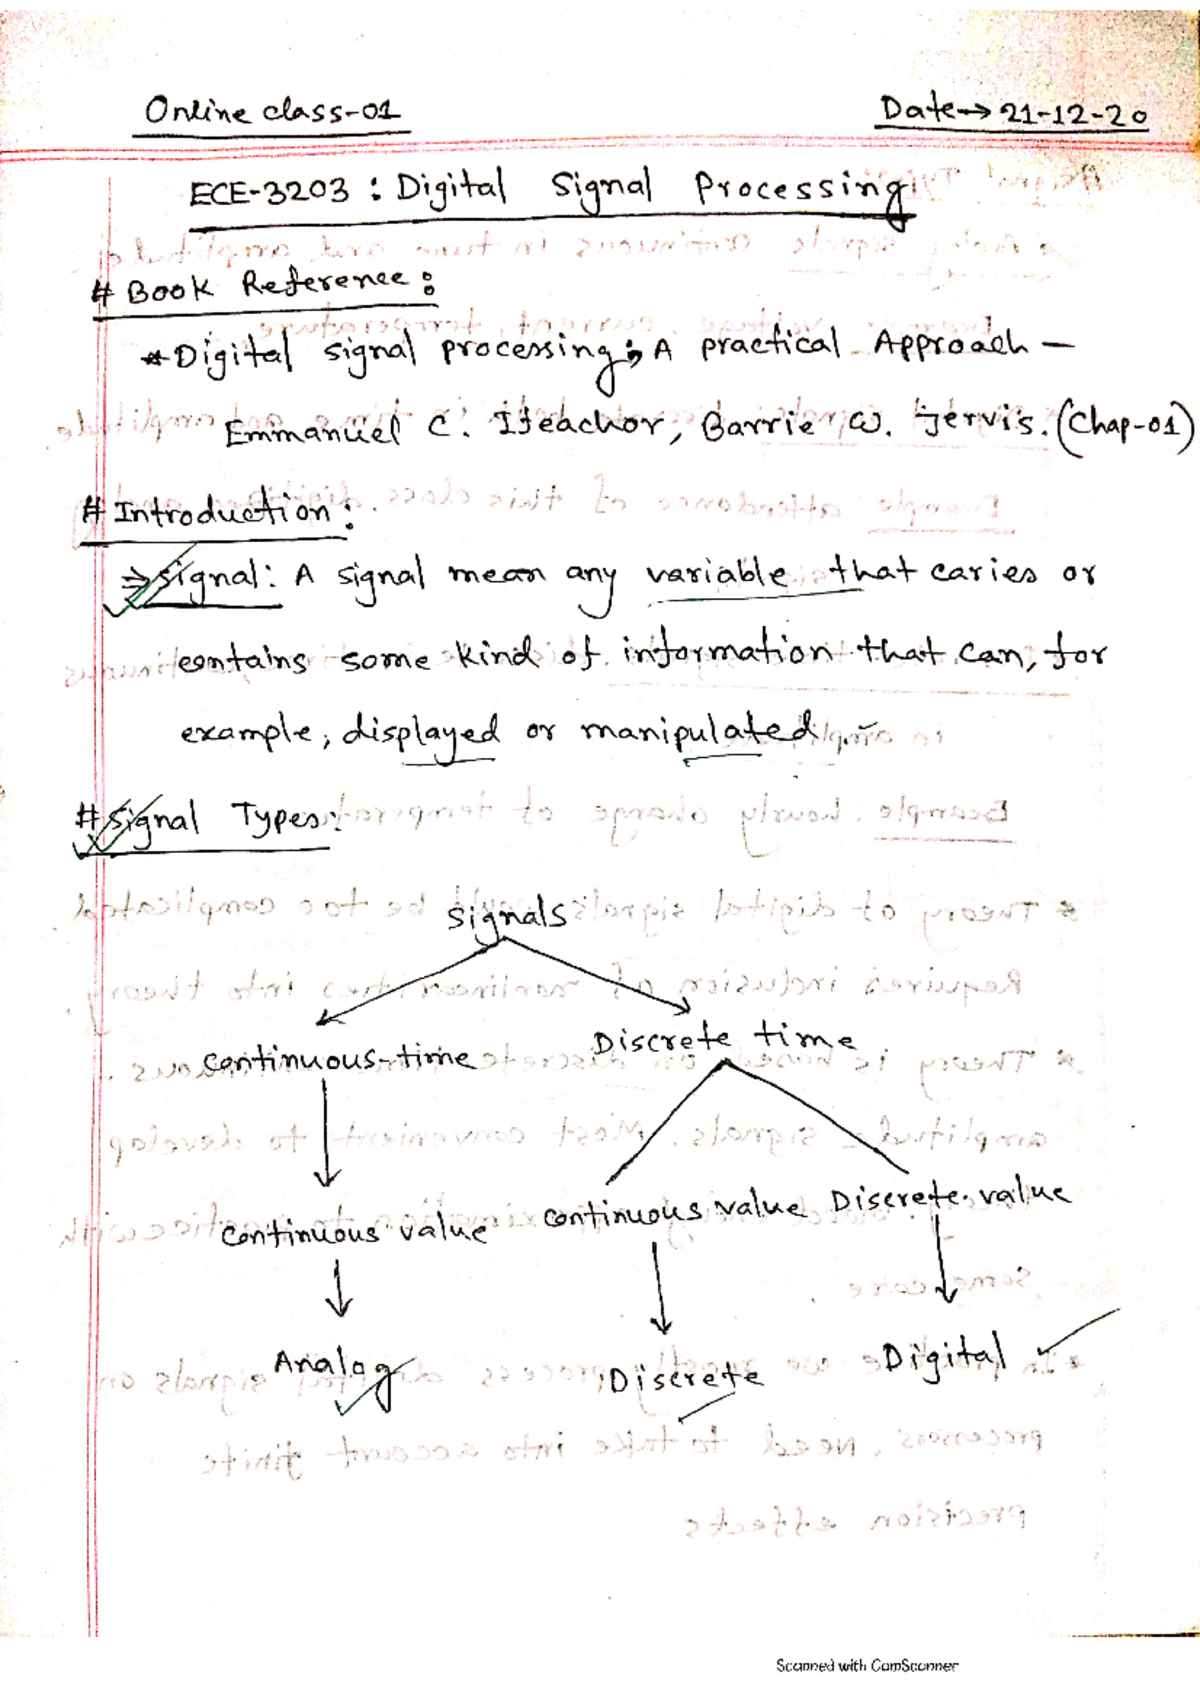 Online class-01
Date→ 21-12-20
ECE-3203 : Digital Signal Processing
# Book Reference :
* Digital signal processing; A practical Approach —
Emmanuel C. Ifeachor, Barrie W. Jervis. (Chap-01)
# Introduction :
⇒ Signal: A signal mean any variable that caries or
contains some kind of information that can, for
example, displayed or manipulated
# Signal Types:
Signals
Continuous-time Discrete time
Continuous value Continuous value Discrete value
Analog Discrete Digital
Scanned with CamScanner